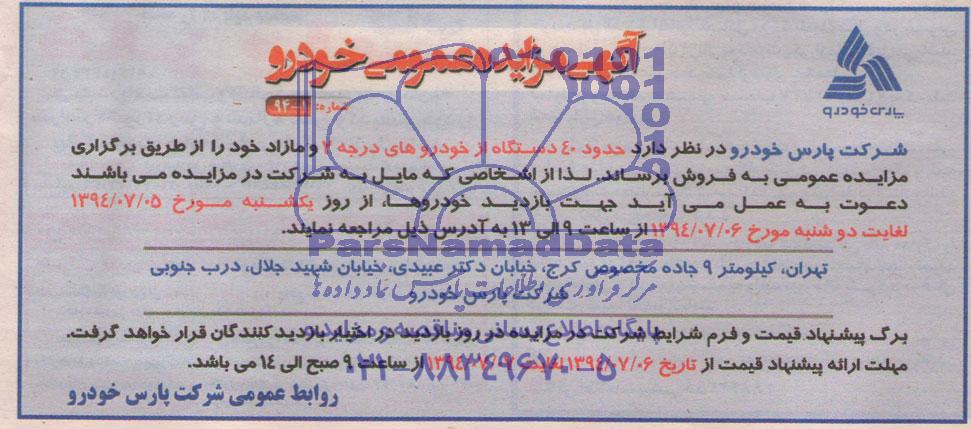 آگهی مزایده عمومی خودرو
شماره: 94-
پارس خودرو
شرکت پارس خودرو در نظر دارد حدود ۴۰ دستگاه از خودرو های درجه ۲ و مازاد خود را از طریق برگزاری
مزایده عمومی به فروش برساند. لذا از اشخاصی که مایل به شرکت در مزایده می باشند
دعوت به عمل می آید جهت بازدید خودروها، از روز یکشنبه مورخ ۱۳۹۴/۰۷/۰۵
لغایت دو شنبه مورخ ۱۳۹۴/۰۷/۰۶ از ساعت ۹ الی ۱۳ به آدرس ذیل مراجعه نمایند.
تهران، کیلومتر ۹ جاده مخصوص کرج، خیابان دکتر عبیدی، خیابان شهید جلال، درب جنوبی
شرکت پارس خودرو
برگ پیشنهاد قیمت و فرم شرایط شرکت در مزایده در روز بازدید در اختیار بازدید کنندگان قرار خواهد گرفت.
مهلت ارائه پیشنهاد قیمت از تاریخ ۱۳۹۴/۰۷/۰۶ لغایت از ساعت ۹ صبح الی ۱۴ می باشد.
روابط عمومی شرکت پارس خودرو
ParsNamadData
مرکز فرآوری اطلاعات پارس نماد داده ها
پایگاه اطلاع رسانی مناقصه و مزایده
۰۲۱-۸۸۳۴۹۶۷۰-۵